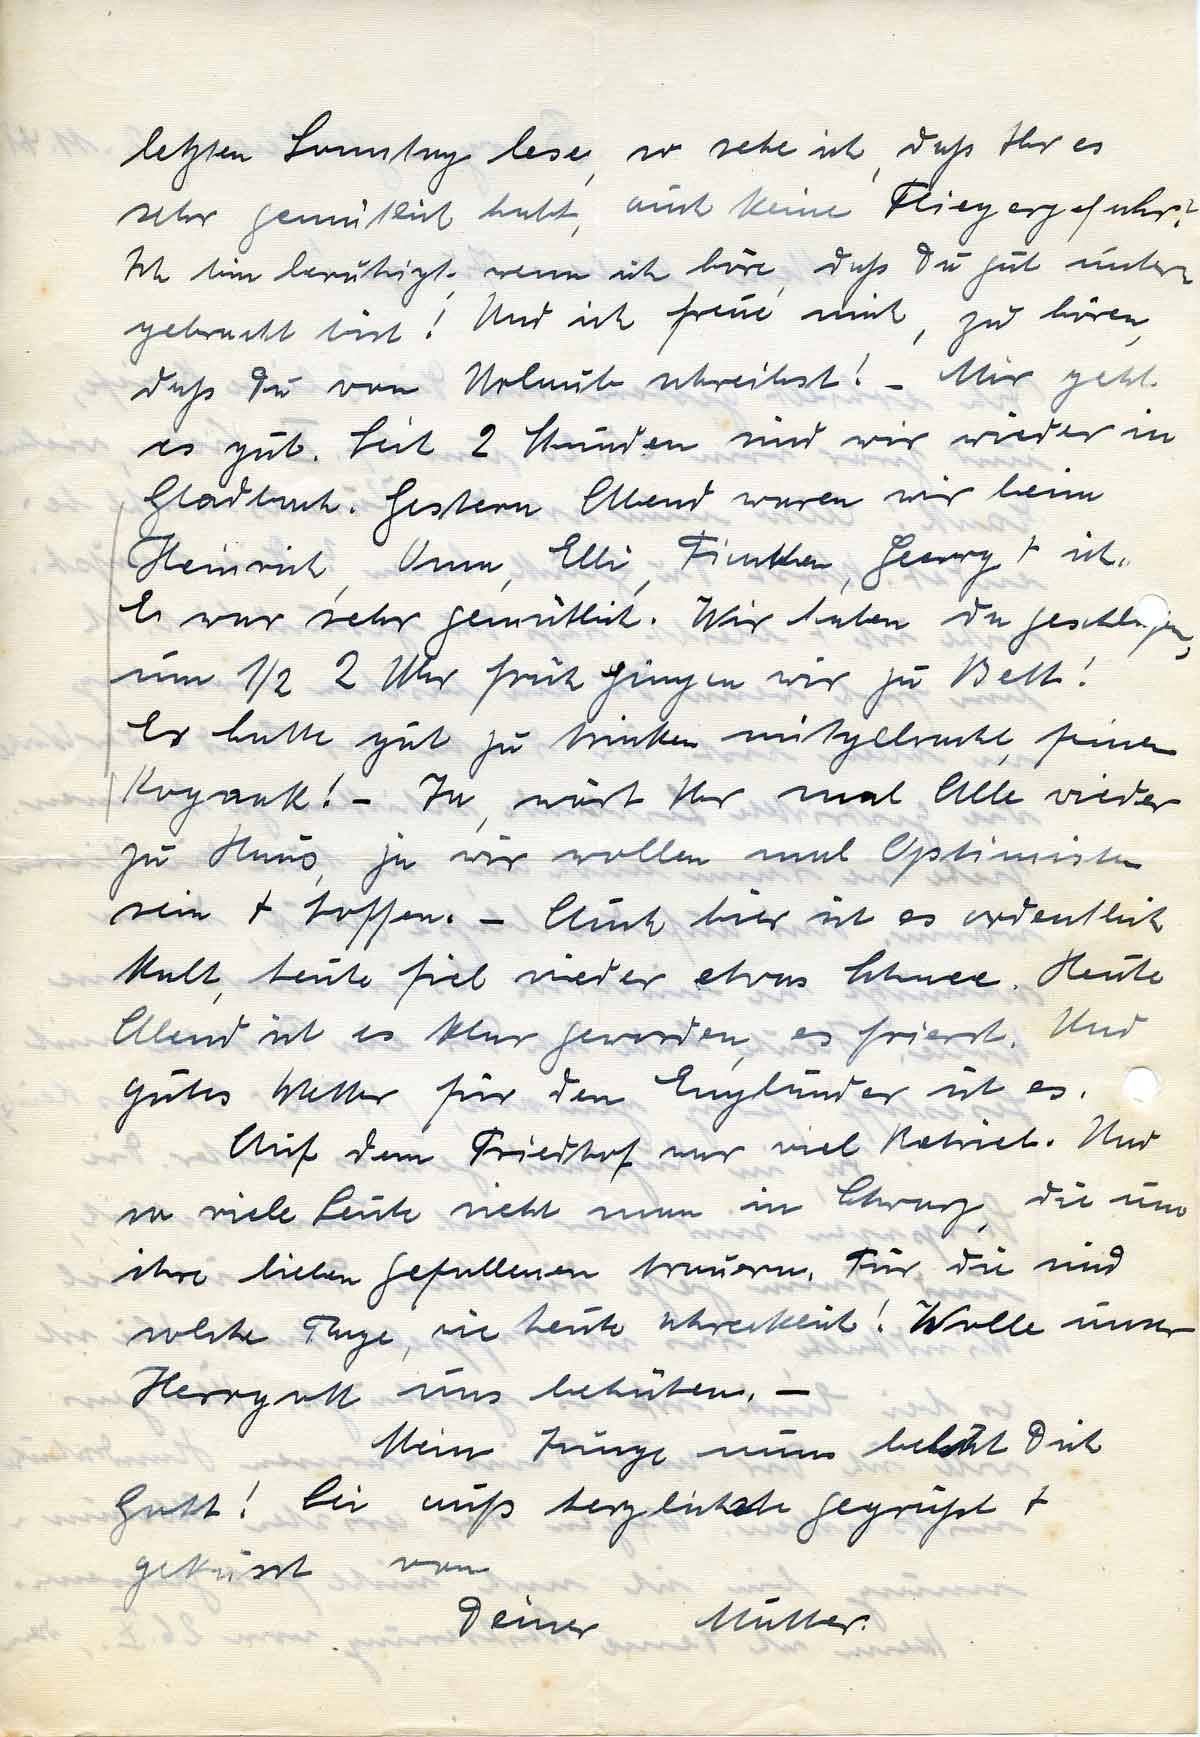 letzten Sonntag lese, so sehe ich, daß Ihr es
sehr gemütlich habt, auch keine Fliegergefahr?
Ich bin beruhigt, wenn ich höre, daß Du gut unter
gebracht bist! Und ich freue mich, zu hören,
daß Du von Urlaub schreibst! – Mir geht
es gut. Seit 2 Stunden sind wir wieder in
Gladbach. Gestern Abend waren wir beim
Heinrich, Änne, Elli, Finchen, Georg + ich.
Es war sehr gemütlich. Wir haben da geschlafen,
um 1/2 2 Uhr früh gingen wir zu Bett!
Er hatte gut zu trinken mitgebracht, feinen
Kognak! – Ja, wärt Ihr mal Alle wieder
zu Haus, ja wir wollen mal Optimisten
sein + hoffen. – Auch hier ist es ordentlich
kalt, heute fiel wieder etwas Schnee. Heute
Abend ist es klar geworden, es friert. Und
gutes Wetter für den Engländer ist es.
Auf dem Friedhof war viel Betrieb. Und
so viele Leute sieht man in Schwarz, die um
ihre lieben Gefallenen trauern. Für die sind
solche Tage, wie heute schrecklich! Wolle unser
Herrgott uns behüten. –
Mein Junge nun behüt Dich
Gott! Sei aufs herzlichste gegrüßt +
geküsst von
Deiner Mutter.